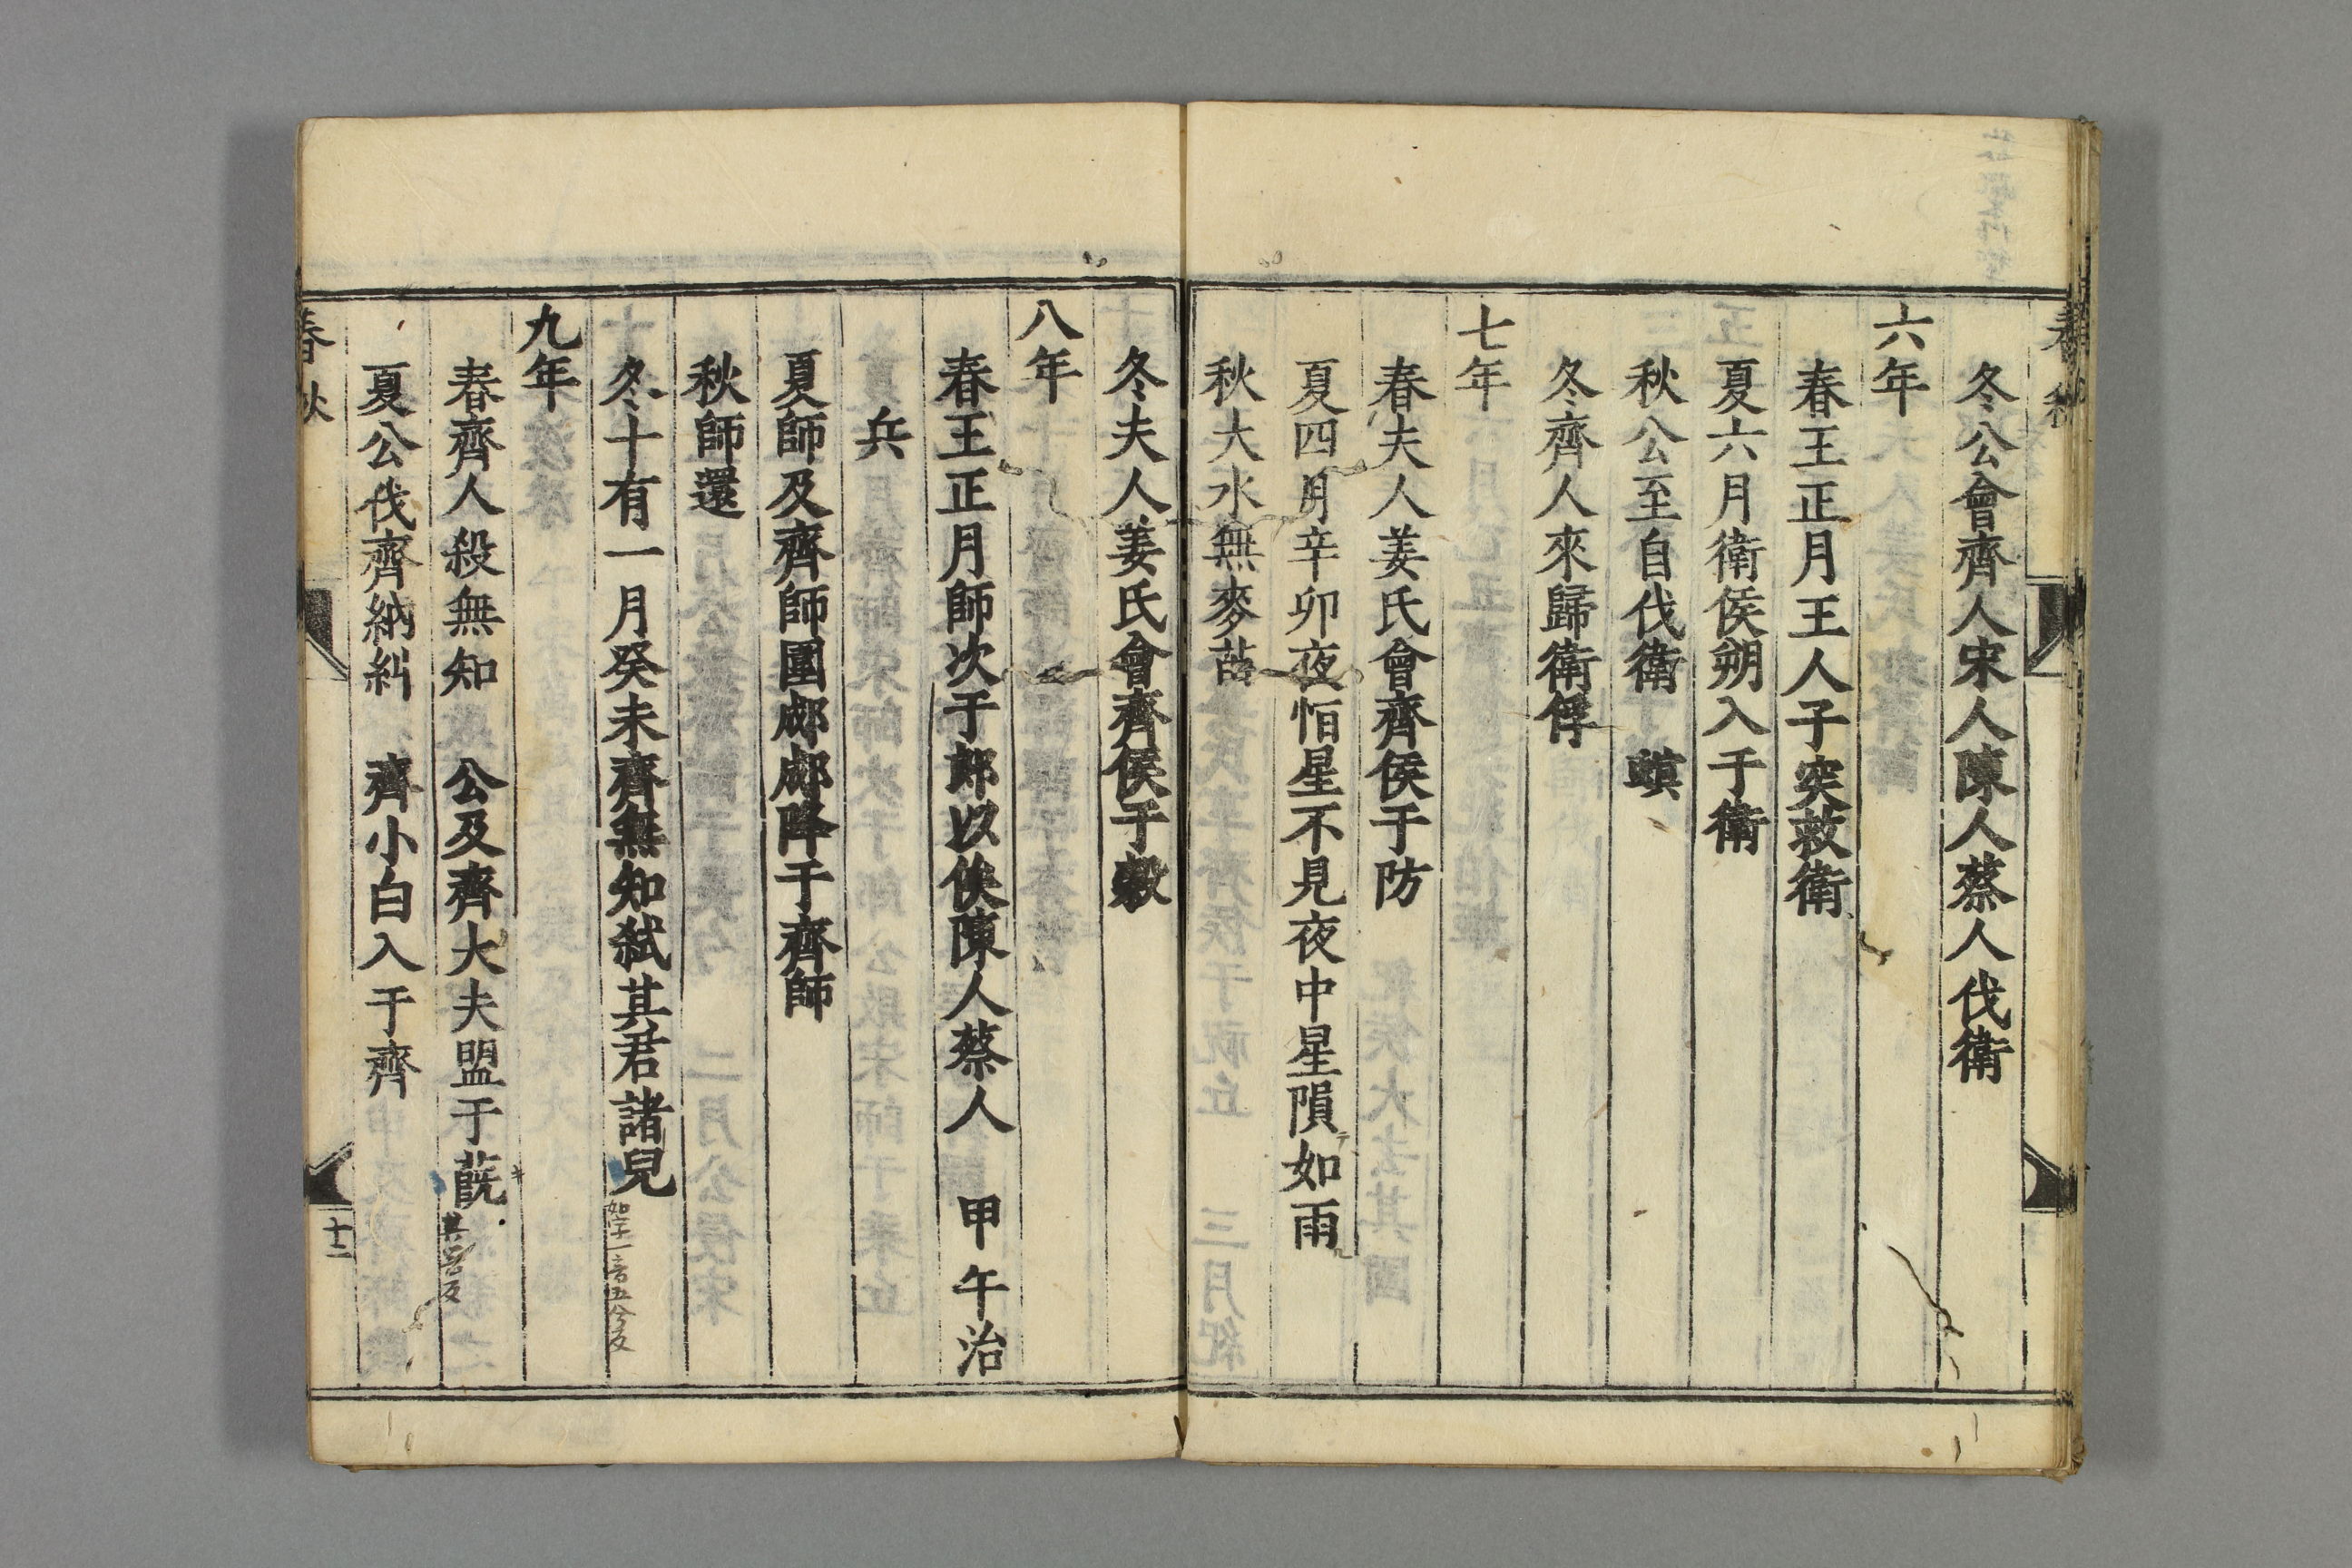 春秋
冬公會齊人宋人陳人蔡人伐衛
六年
春王正月王人子突救衛
夏六月衛侯朔入于衛
秋公至自伐衛　螟
冬齊人來歸衛俘
七年
春夫人姜氏會齊侯于防
夏四月辛卯夜恒星不見夜中星隕如雨
秋大水無麥苗
冬夫人姜氏會齊侯于穀
八年
春王正月師次于郎以俟陳人蔡人　甲午治
兵
夏師及齊師圍郕郕降于齊師
秋師還
冬十有一月癸未齊無知弑其君諸兒如字一音五兮反
九年
春齊人殺無知　公及齊大夫盟于蔇其器反
夏公伐齊納糾　齊小白入于齊
春秋
十二